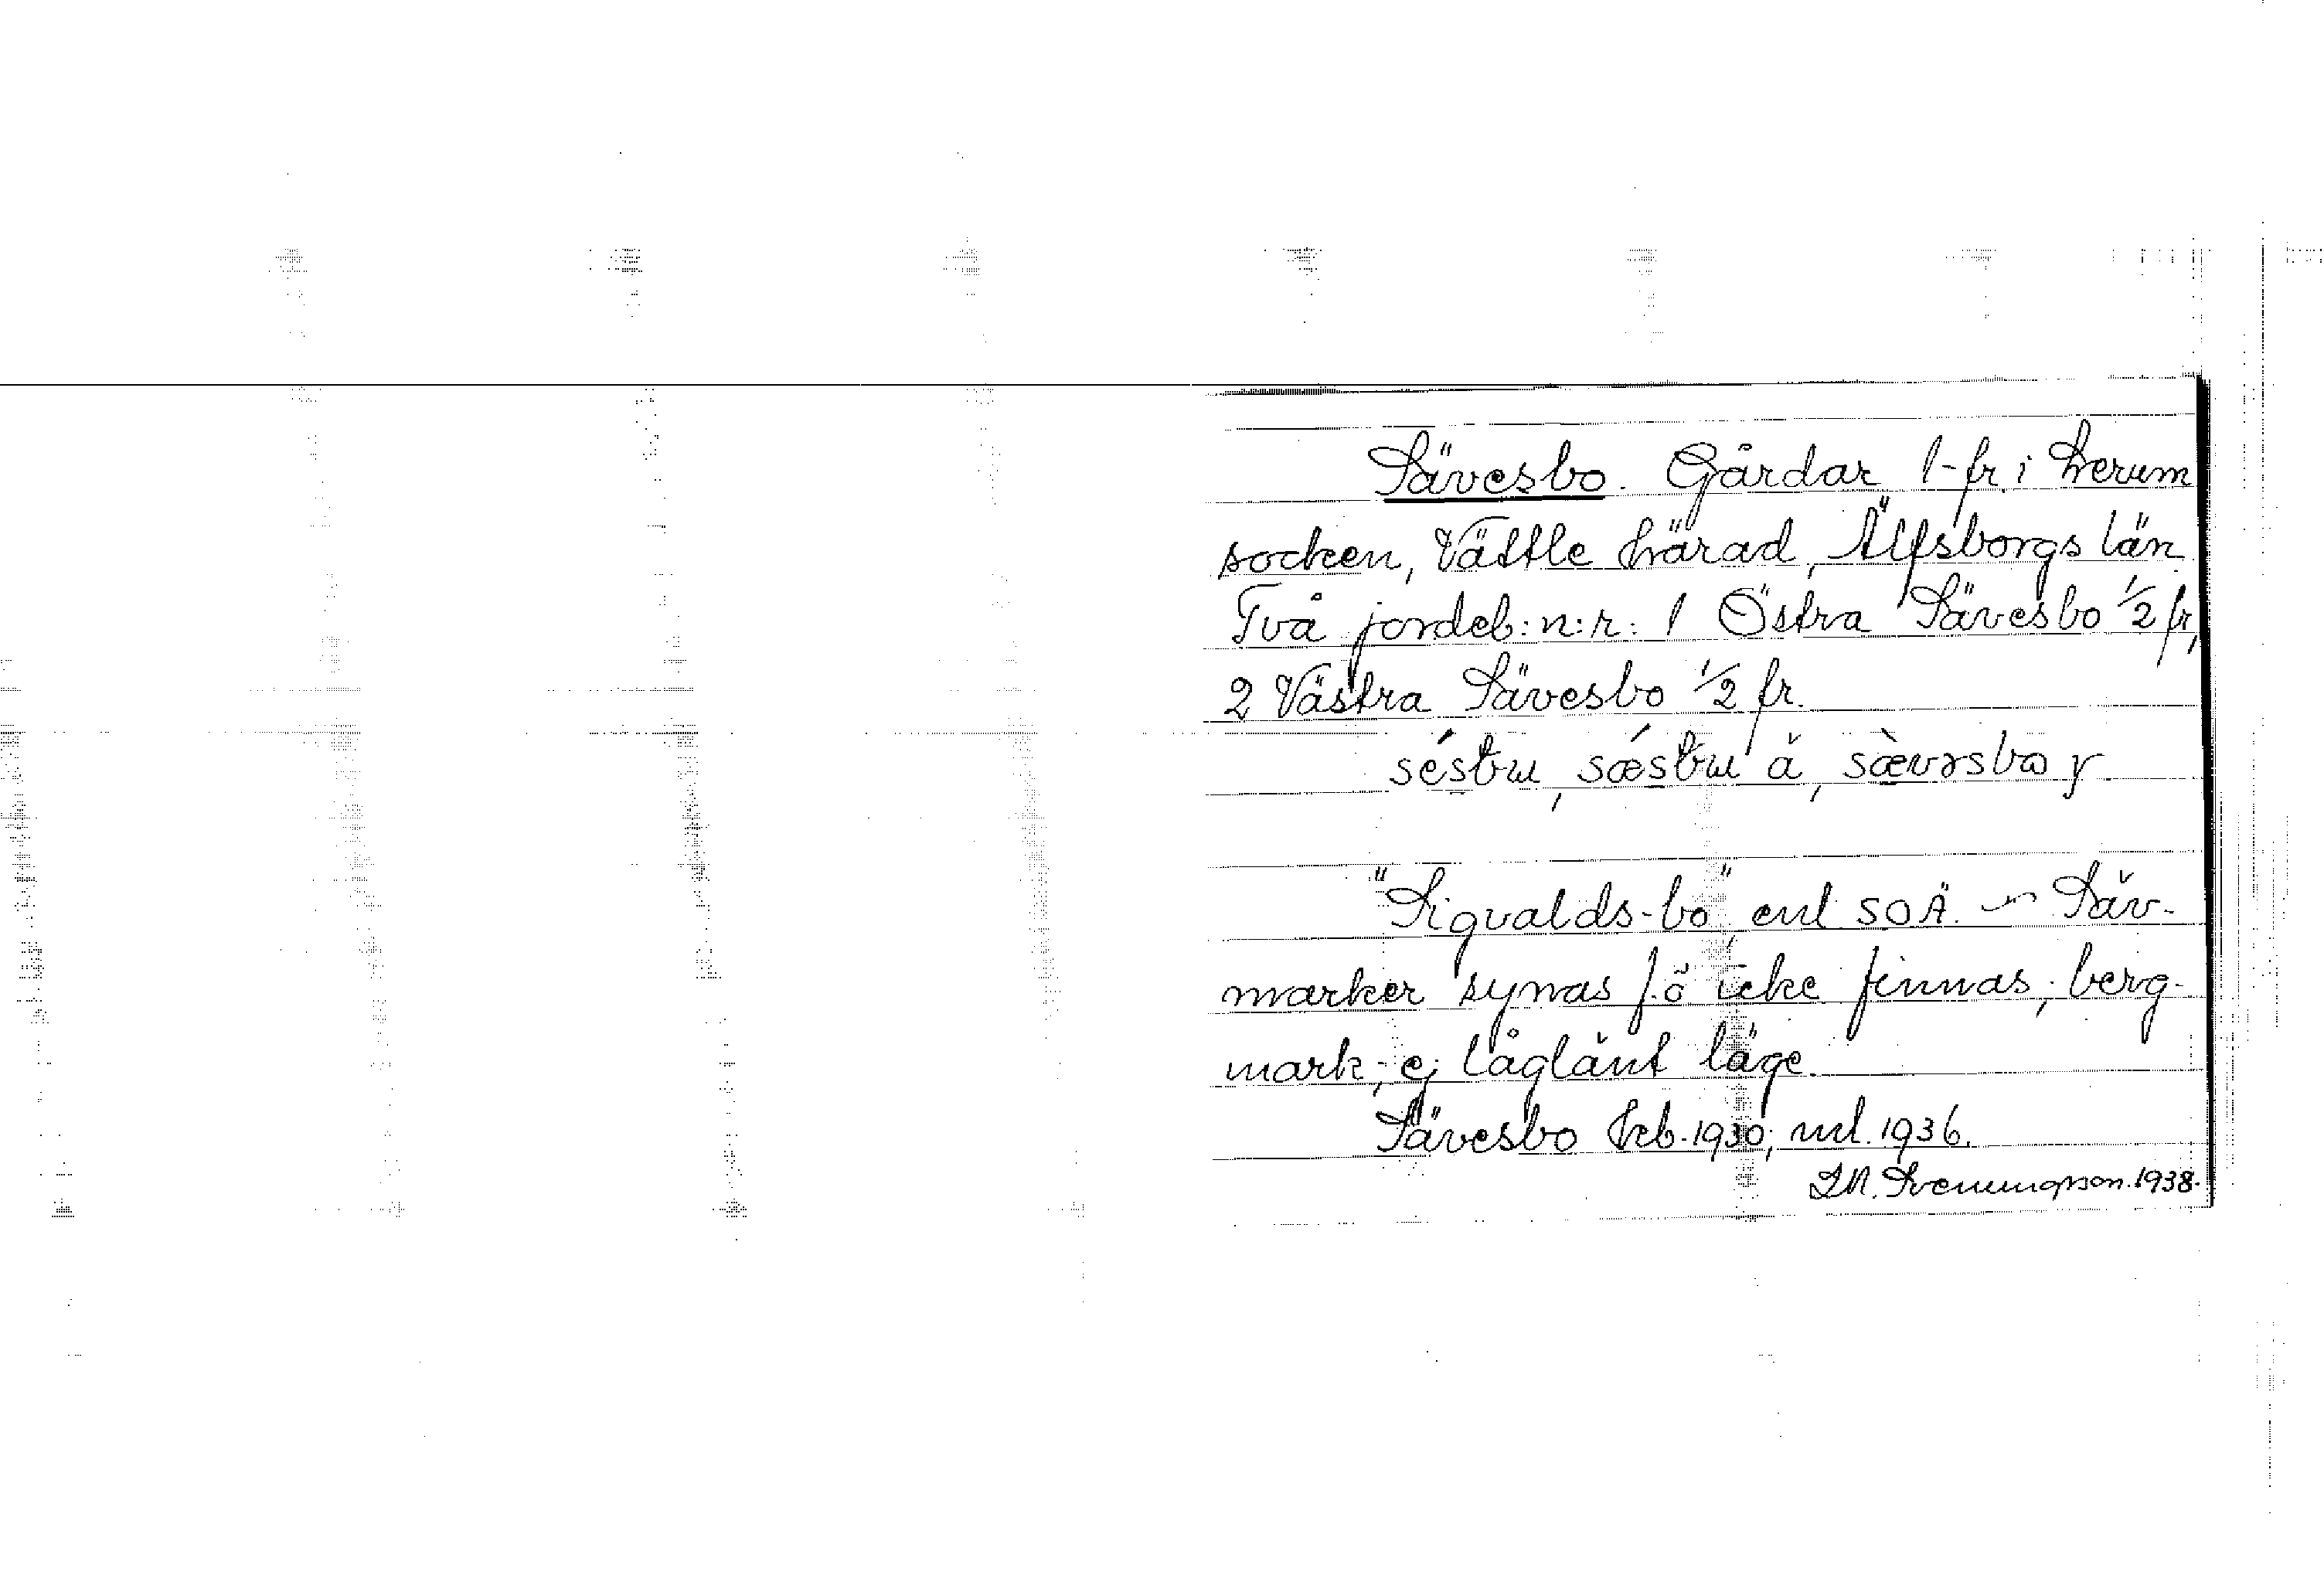 Sävesbo. Gårdar 1-fr. i Lerum
socken, Vättle härad, Älfsborgs län
Två jordeb:n:r: 1 Östra Sävesbo 1/2 fr,
2 Västra Sävesbo 1/2 fr.
séstu, sǽstu ä, sæ̀vəsbo y
"Sigvalds-bo", enl SOÄ. — Säv-
marker synas f.ö icke finnas; berg-
mark, ej låglänt läge.
Sävesbo Feb. 1930; ml. 1936.
Svenungsson. 1938.